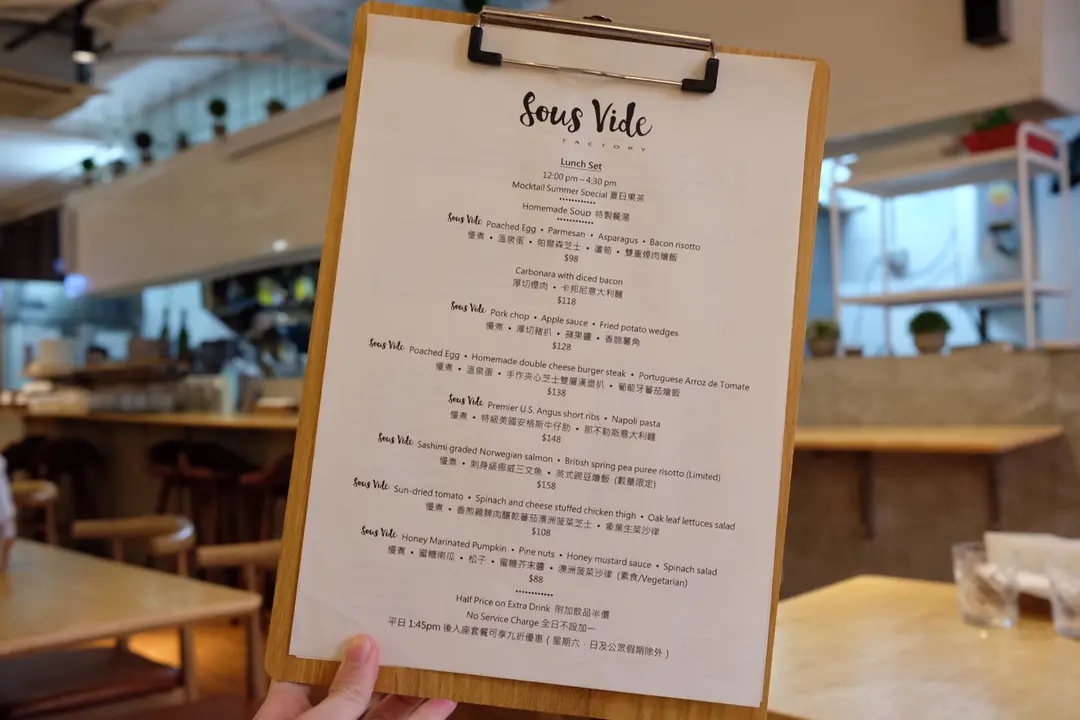 Sous Vide
FACTORY
Lunch Set
12:00 pm – 4:30 pm
Mocktail Summer Special 夏日果茶
Homemade Soup 特製餐湯
Sous Vide Poached Egg • Parmesan • Asparagus • Bacon risotto
慢煮 • 溫泉蛋 • 帕爾森芝士 • 蘆筍 • 雙重煙肉燴飯
$98
Carbonara with diced bacon
厚切煙肉 • 卡邦尼意大利麵
$118
Sous Vide Pork chop • Apple sauce • Fried potato wedges
慢煮 • 厚切豬扒 • 蘋果醬 • 香脆薯角
$128
Sous Vide Poached Egg • Homemade double cheese burger steak • Portuguese Arroz de Tomate
慢煮 • 溫泉蛋 • 手作夾心芝士雙層漢堡扒 • 葡萄牙蕃茄燴飯
$138
Sous Vide Premier U.S. Angus short ribs • Napoli pasta
慢煮 • 特級美國安格斯牛仔肋 • 那不勒斯意大利麵
$148
Sous Vide Sashimi graded Norwegian salmon • British spring pea puree risotto (Limited)
慢煮 • 刺身級挪威三文魚 • 英式豌豆燴飯 (數量限定)
$158
Sous Vide Sun-dried tomato • Spinach and cheese stuffed chicken thigh • Oak leaf lettuces salad
慢煮 • 香煎雞髀肉釀乾蕃茄澳洲菠菜芝士 • 象葉生菜沙律
$108
Sous Vide Honey Marinated Pumpkin • Pine nuts • Honey mustard sauce • Spinach salad
慢煮 • 蜜糖南瓜 • 松子 • 蜜糖芥末醬 • 澳洲菠菜沙律 (素食/Vegetarian)
$88
Half Price on Extra Drink 附加飲品半價
No Service Charge 全日不設加一
平日 1:45pm 後入座套餐可享九折優惠 ( 星期六﹒日及公眾假期除外 )